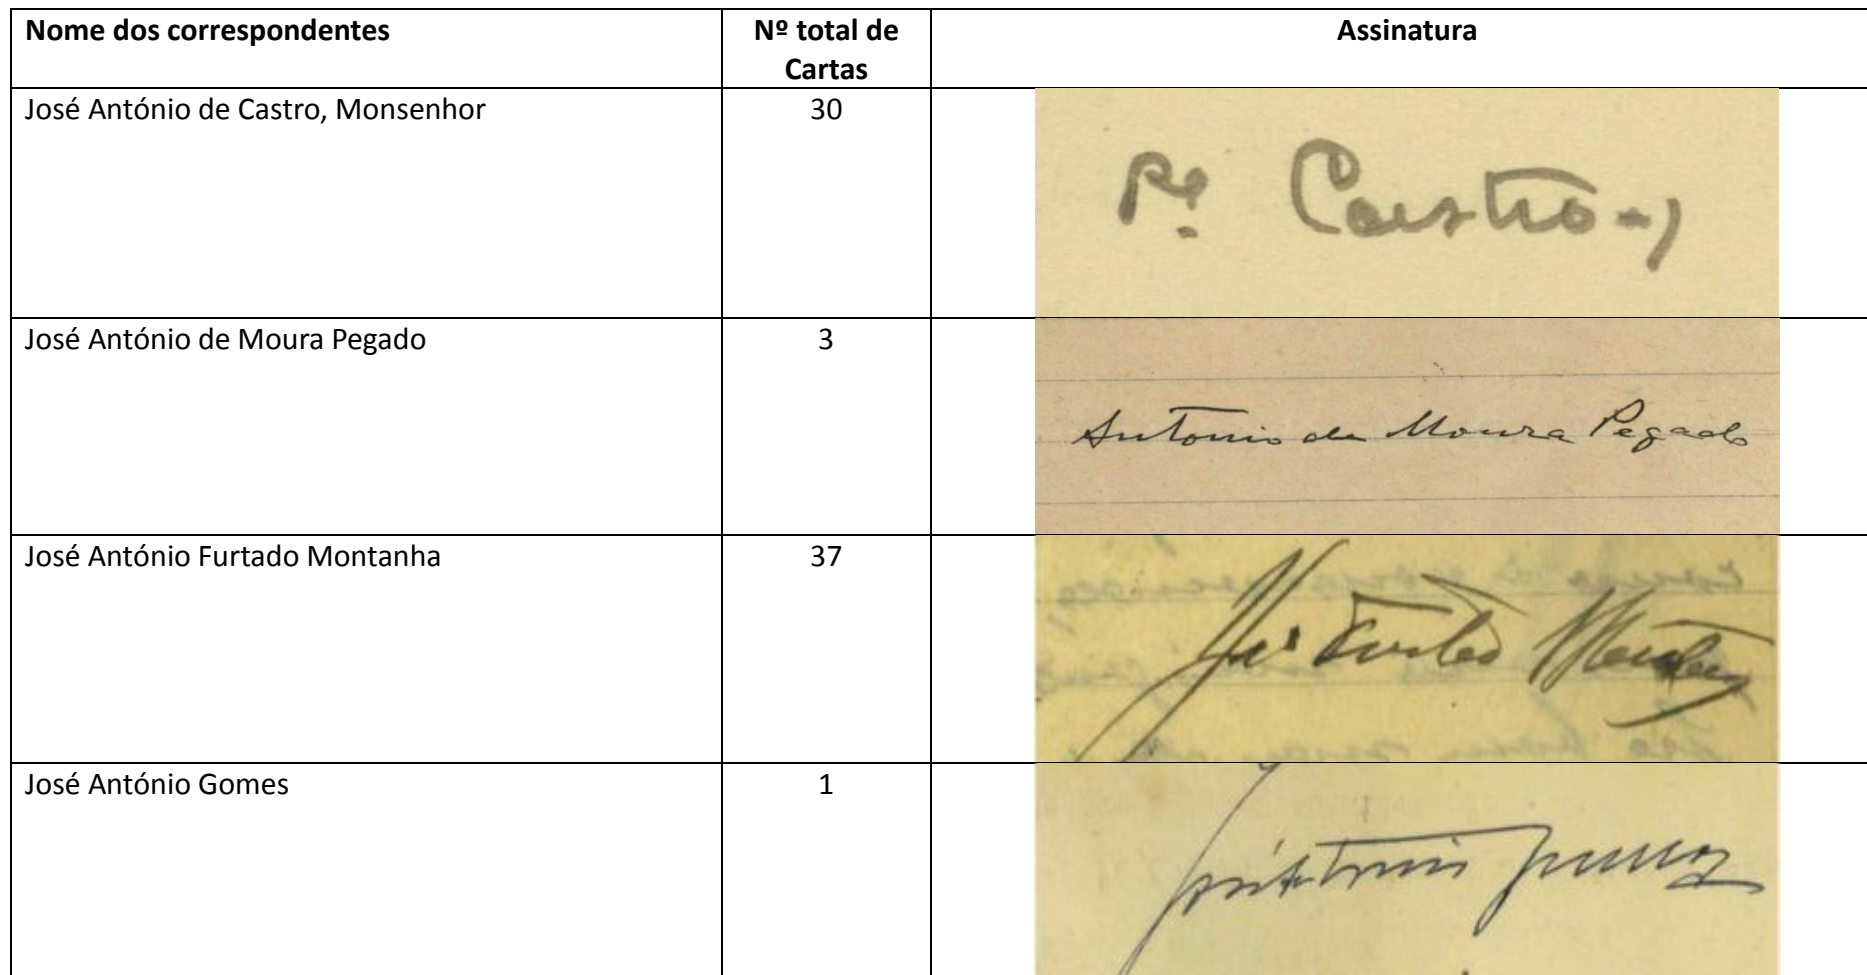 Nome dos correspondentes
Nº total de
Cartas
Assinatura
José António de Castro, Monsenhor
30
Pe. Castro
José António de Moura Pegado
3
Antonio de Moura Pegado
José António Furtado Montanha
37
José Furtado Montanha
José António Gomes
1
José Antonio Gomes